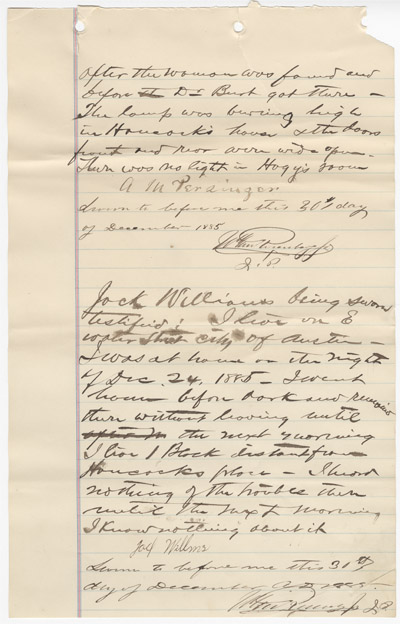 after the woman was found and
before th Dr Burt got there –
The lamp was burning high
in Hancock's house & the doors
front and rear were wide open –
There was no light in Hogy's room
A M Persinger
Sworn to before me this 30th day
of December 1885
J.P.
Jack Williams being sworn
testified: I live on E
water Street city of Austin –
I was at home on the night
of Dec. 24, 1885 – I went
home before dark and remained
there without leaving until
the next morning
I live 1 Block distant from
Hancocks place – I heard
nothing of the trouble there
until the next morning
I know nothing about it
Jack Willims
Sworn to before me this 30th
day of December A.D. 1885 –
J.P.